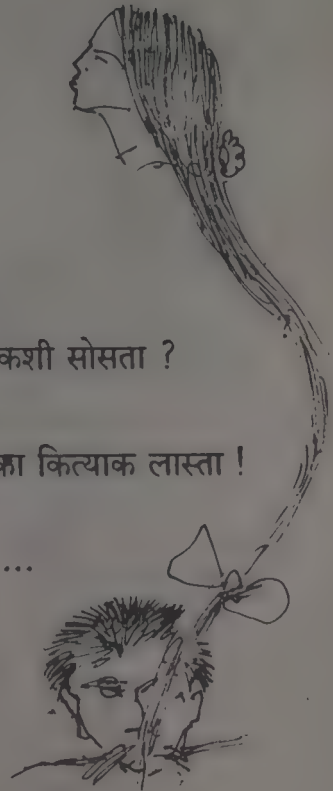 कशी सोसता ?
कित्याक लास्ता !
...